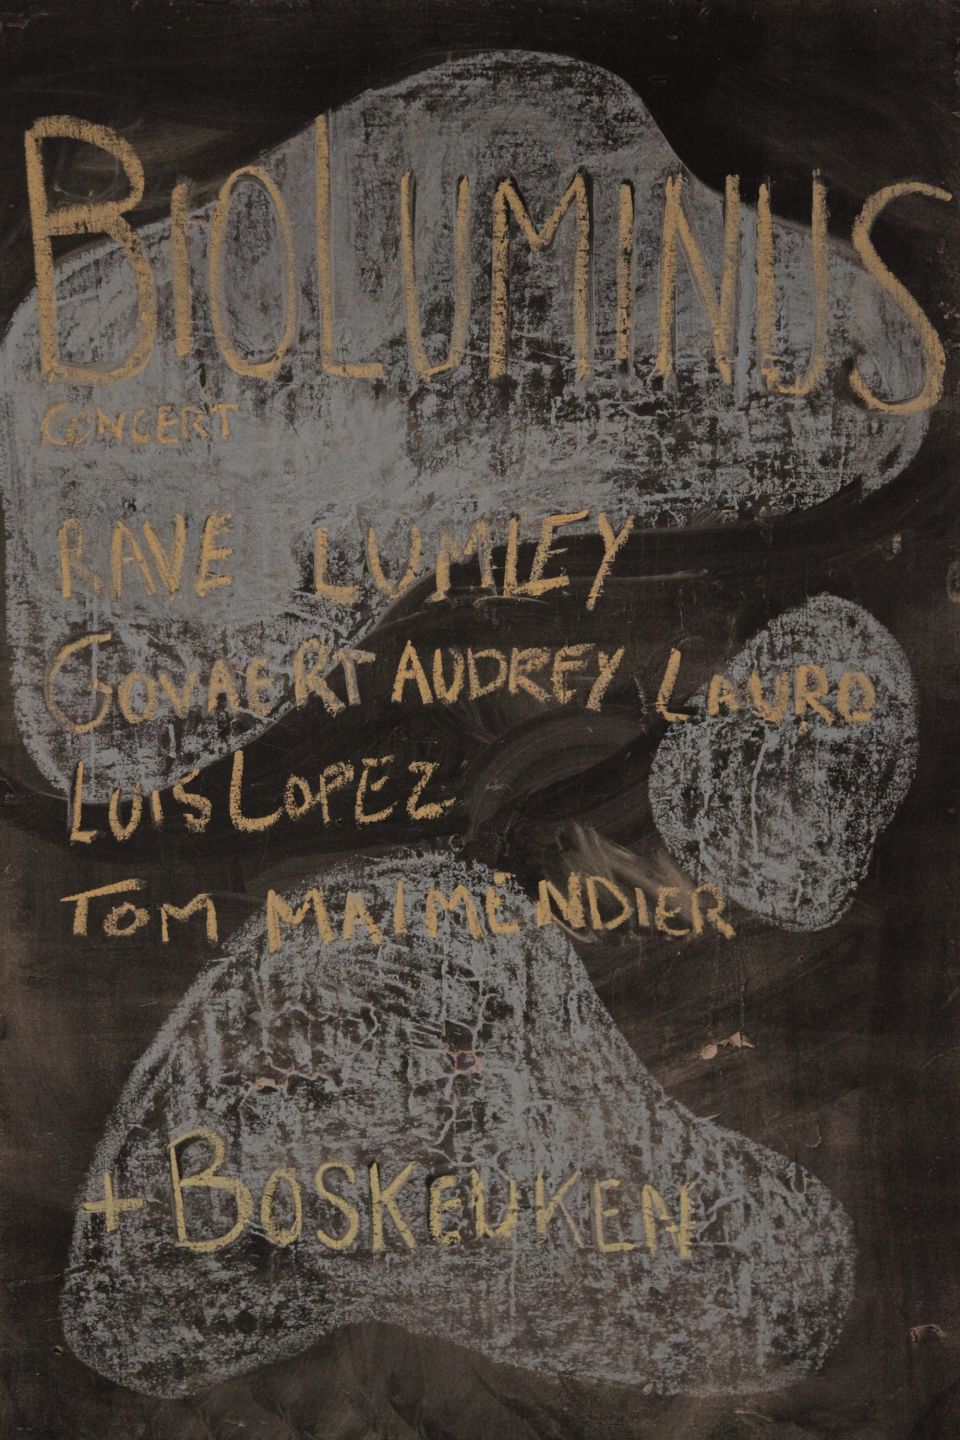 BIOLUMINUS
CONCERT
RAVE LUMLEY
GOVAERT AUDREY LAURO
LUIS LOPEZ
TOM MALMENDIER
+ BOSKEUKEN